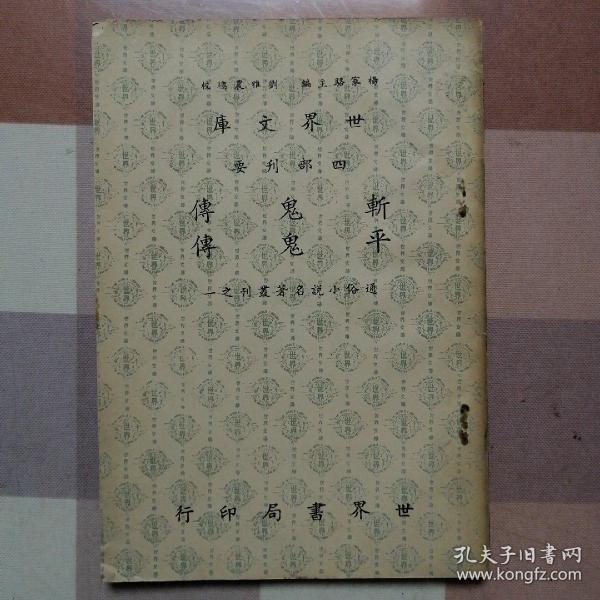 楊家駱主編 劉雅農總校
世界文庫
四部刊要
斬鬼傳
平鬼傳
通俗小說名著叢刊之一
世界書局印行
孔夫子旧书网
www.kongfz.com